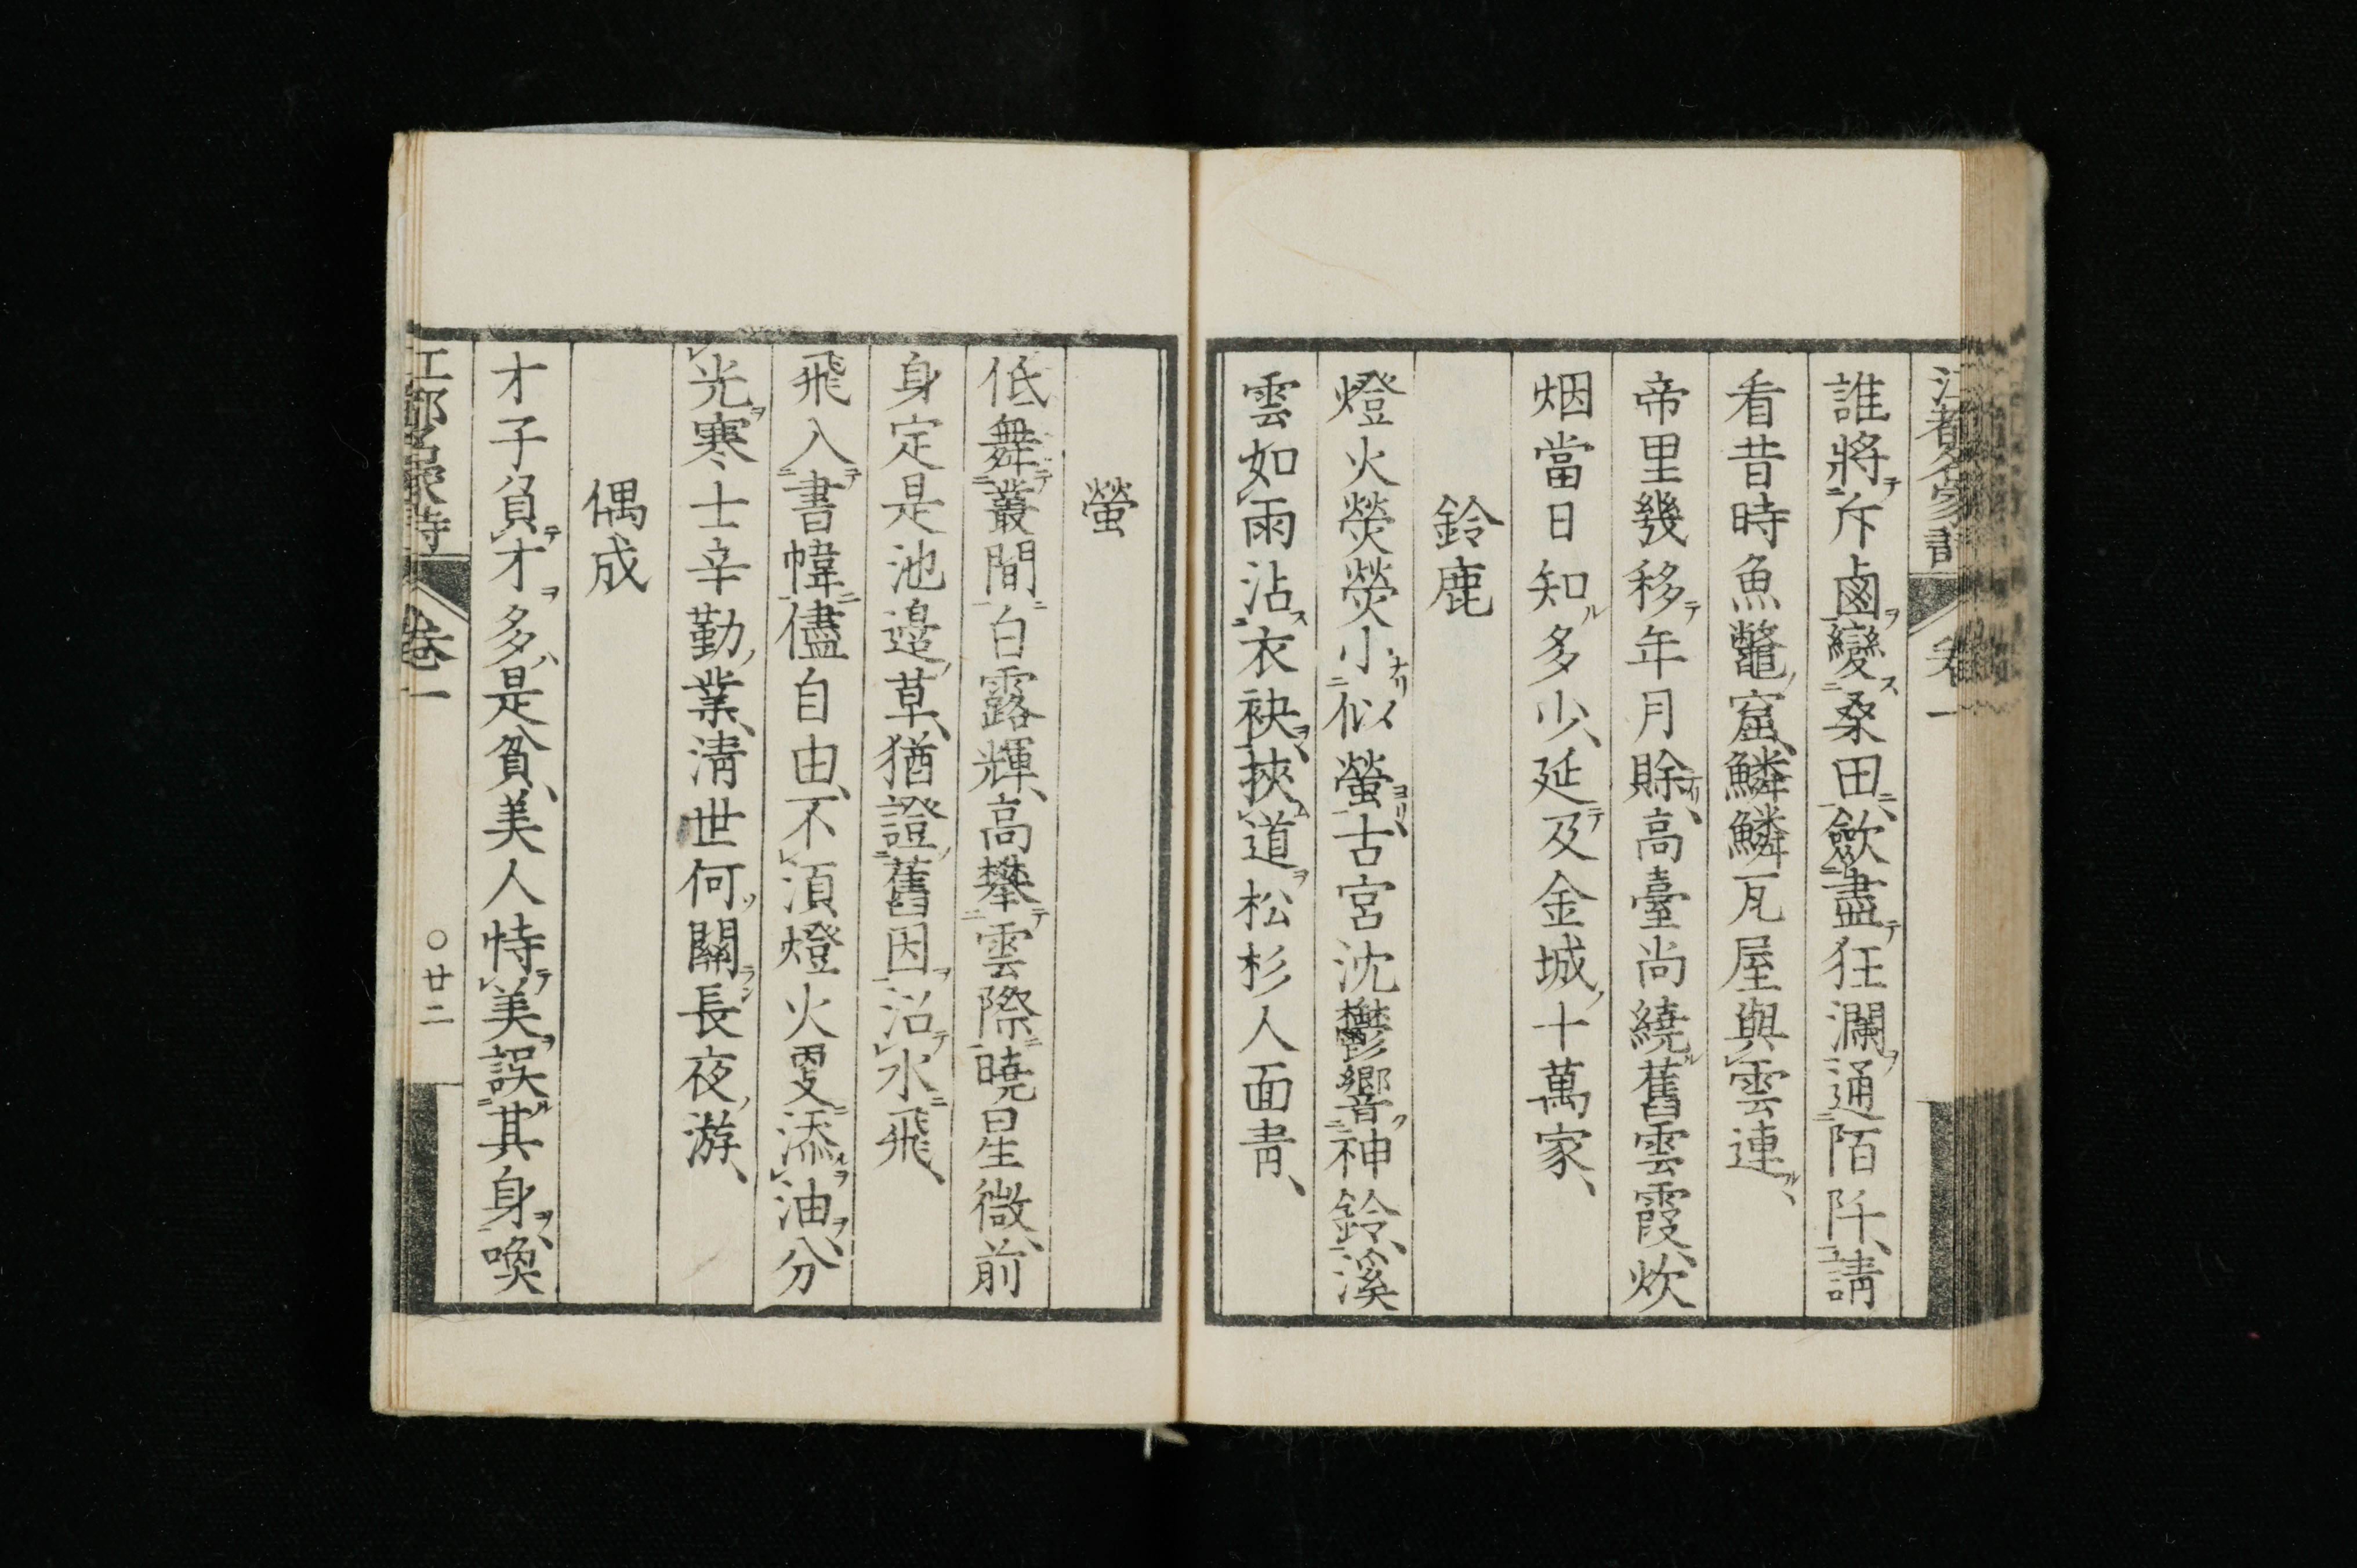 江都名家詩
卷一
誰將斥鹵變桑田、斂盡狂瀾通陌阡、請
看昔時魚鼈窟、鱗鱗瓦屋與雲連、
帝里幾移年月賖、高臺尚繞舊雲霞、炊
烟當日知多少、延及金城十萬家、
鈴鹿
燈火熒熒小似螢、古宮沈鬱響神鈴、溪
雲如雨沾衣袂、挾道松杉人面靑、
螢
低舞叢間白露輝、高攀雲際曉星微、前
身定是池邉草、猶證舊因沿水飛、
飛入書幃儘自由、不須燈火更添油、分
光寒士辛勤業、淸世何關長夜游、
偶成
才子負才多是貧、美人恃美誤其身、喚
江都名家詩
卷一
○廿二